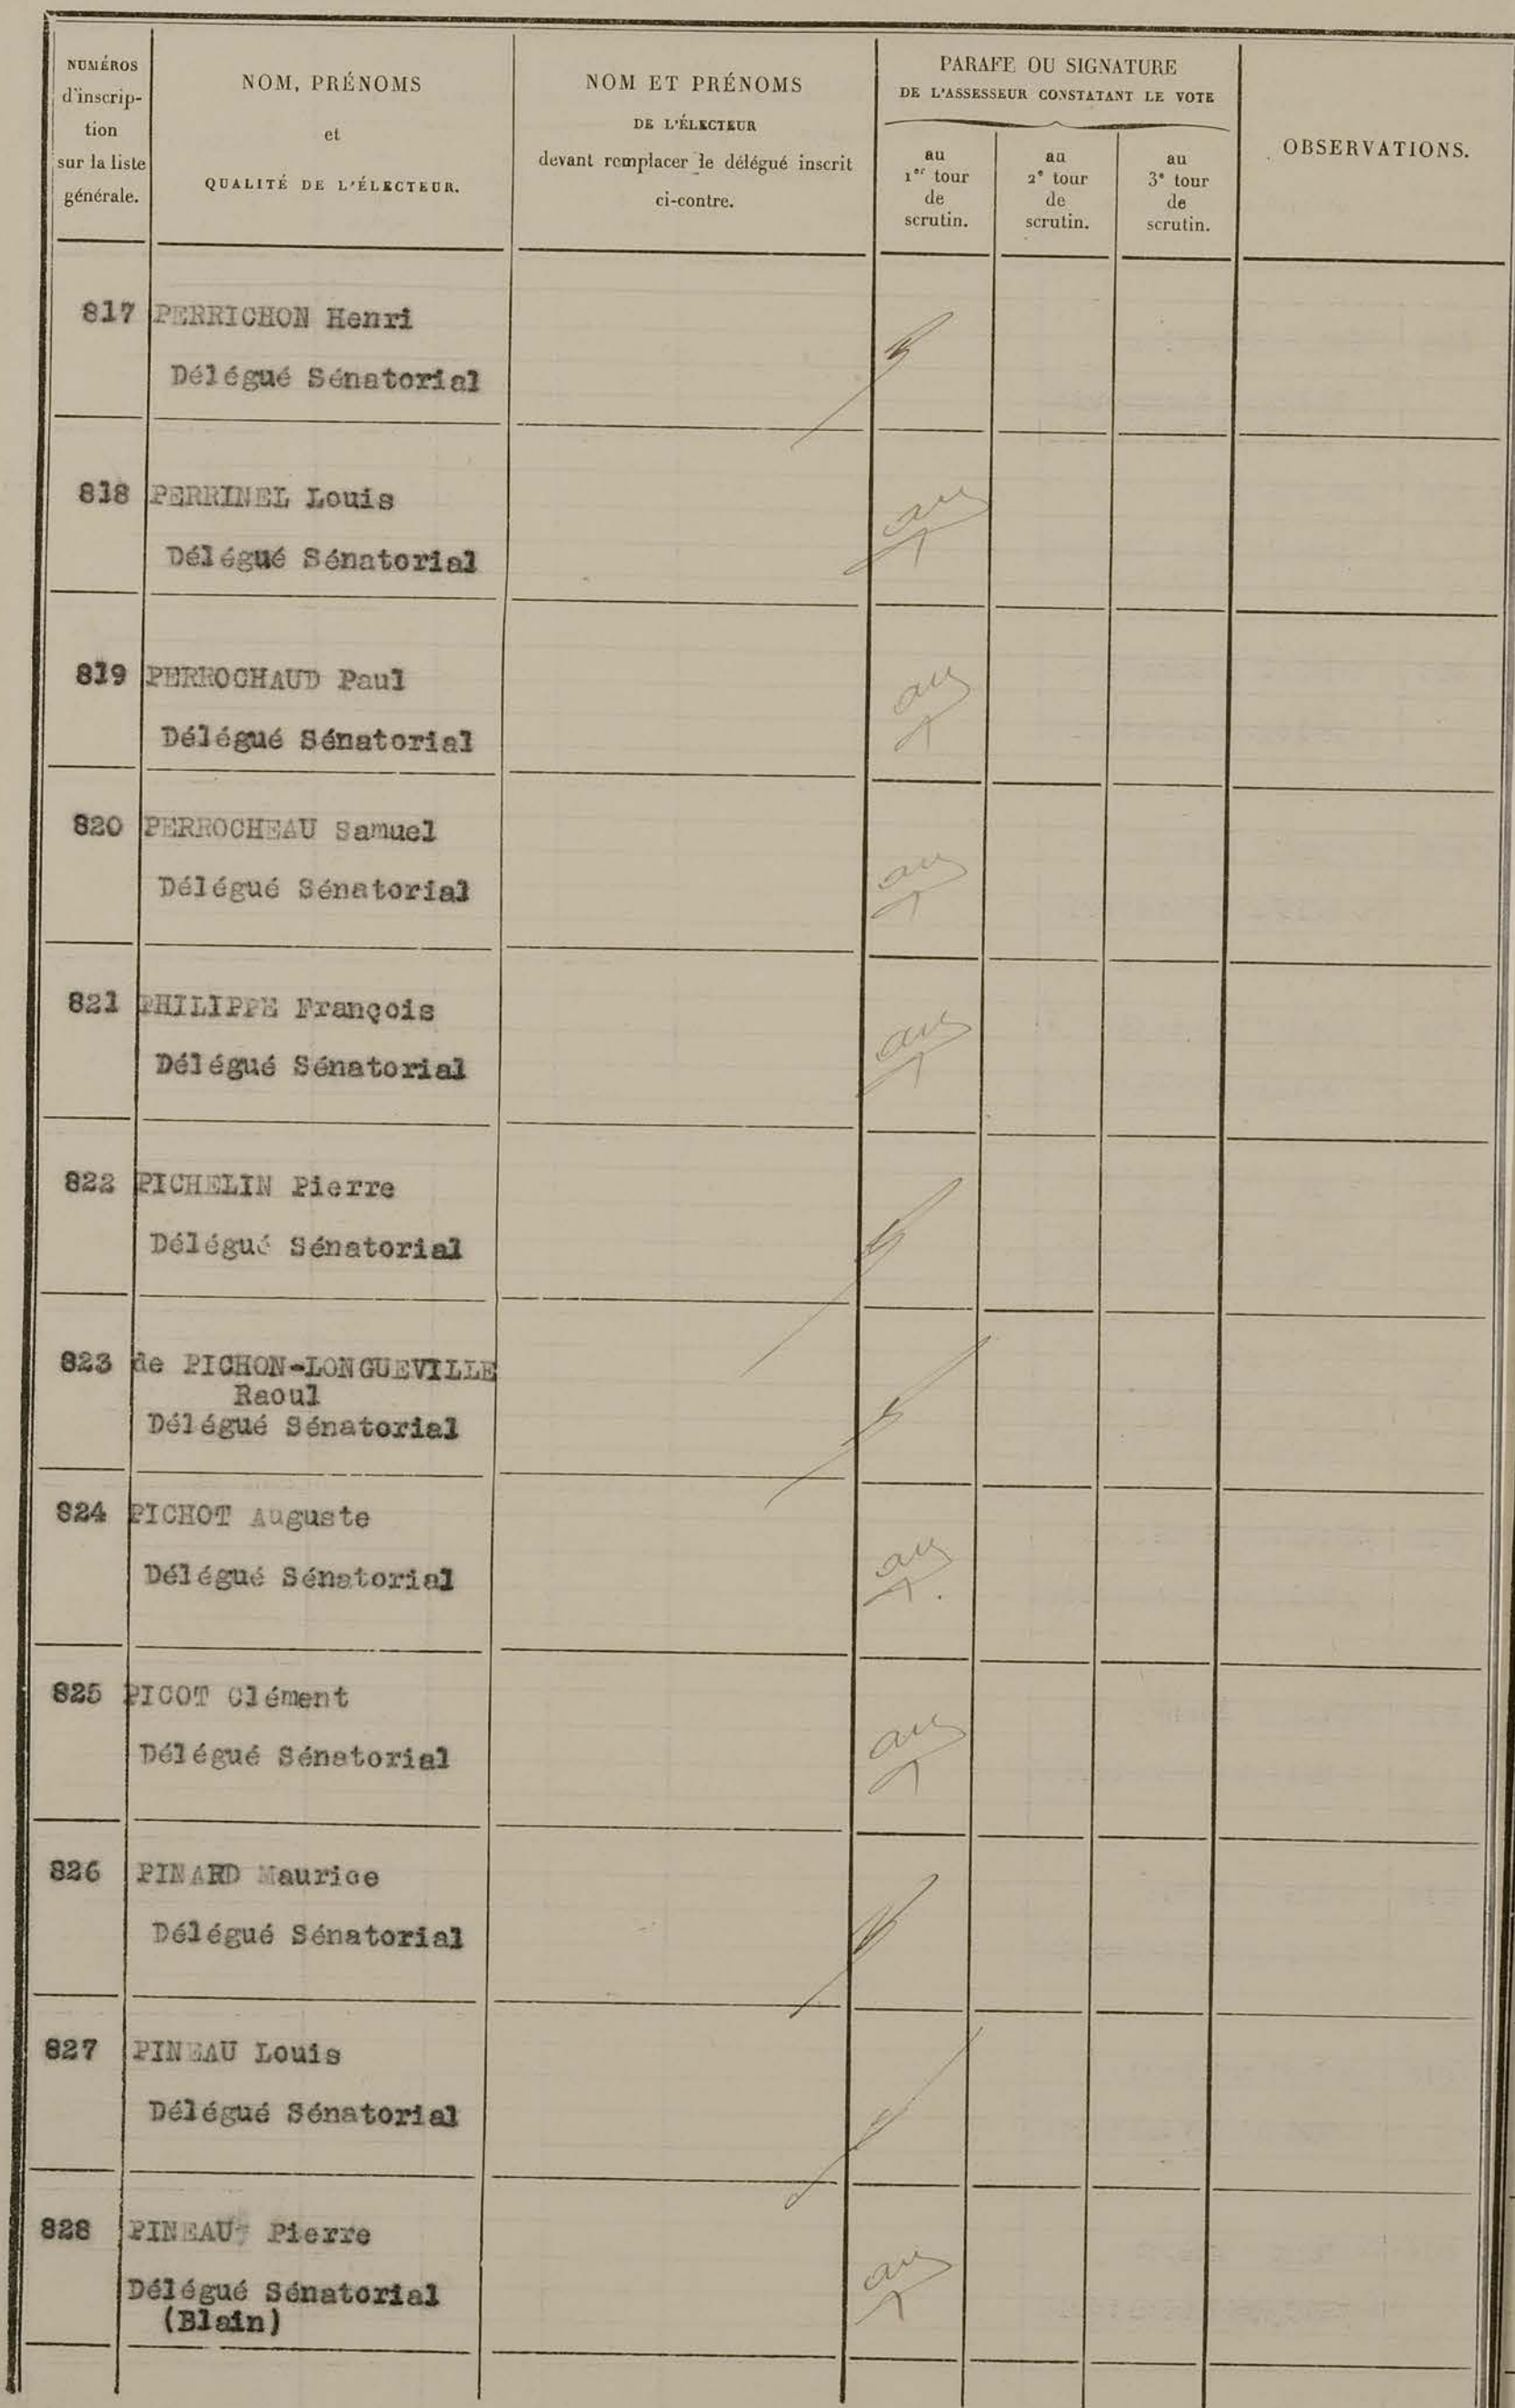 NUMÉROS
d'inscrip-
tion
sur la liste
générale.
NOM, PRÉNOMS
et
QUALITÉ DE L'ÉLECTEUR.
NOM ET PRÉNOMS
DE L'ÉLECTEUR
devant remplacer le délégué inscrit
ci-contre.
PARAFE OU SIGNATURE
DE L'ASSESSEUR CONSTATANT LE VOTE
au
1er tour
de
scrutin.
au
2e tour
de
scrutin.
au
3e tour
de
scrutin.
OBSERVATIONS.
817 PERRICHON Henri
Délégué Sénatorial
818 PERRINEL Louis
Délégué Sénatorial
819 PERROCHAUD Paul
Délégué Sénatorial
820 PERROCHEAU Samuel
Délégué Sénatorial
821 PHILIPPE François
Délégué Sénatorial
822 PICHELIN Pierre
Délégué Sénatorial
823 de PICHON-LONGUEVILLE
Raoul
Délégué Sénatorial
824 PICHOT Auguste
Délégué Sénatorial
825 PICOT Clément
Délégué Sénatorial
826 PINARD Maurice
Délégué Sénatorial
827 PINEAU Louis
Délégué Sénatorial
828 PINEAU Pierre
Délégué Sénatorial
(Blain)